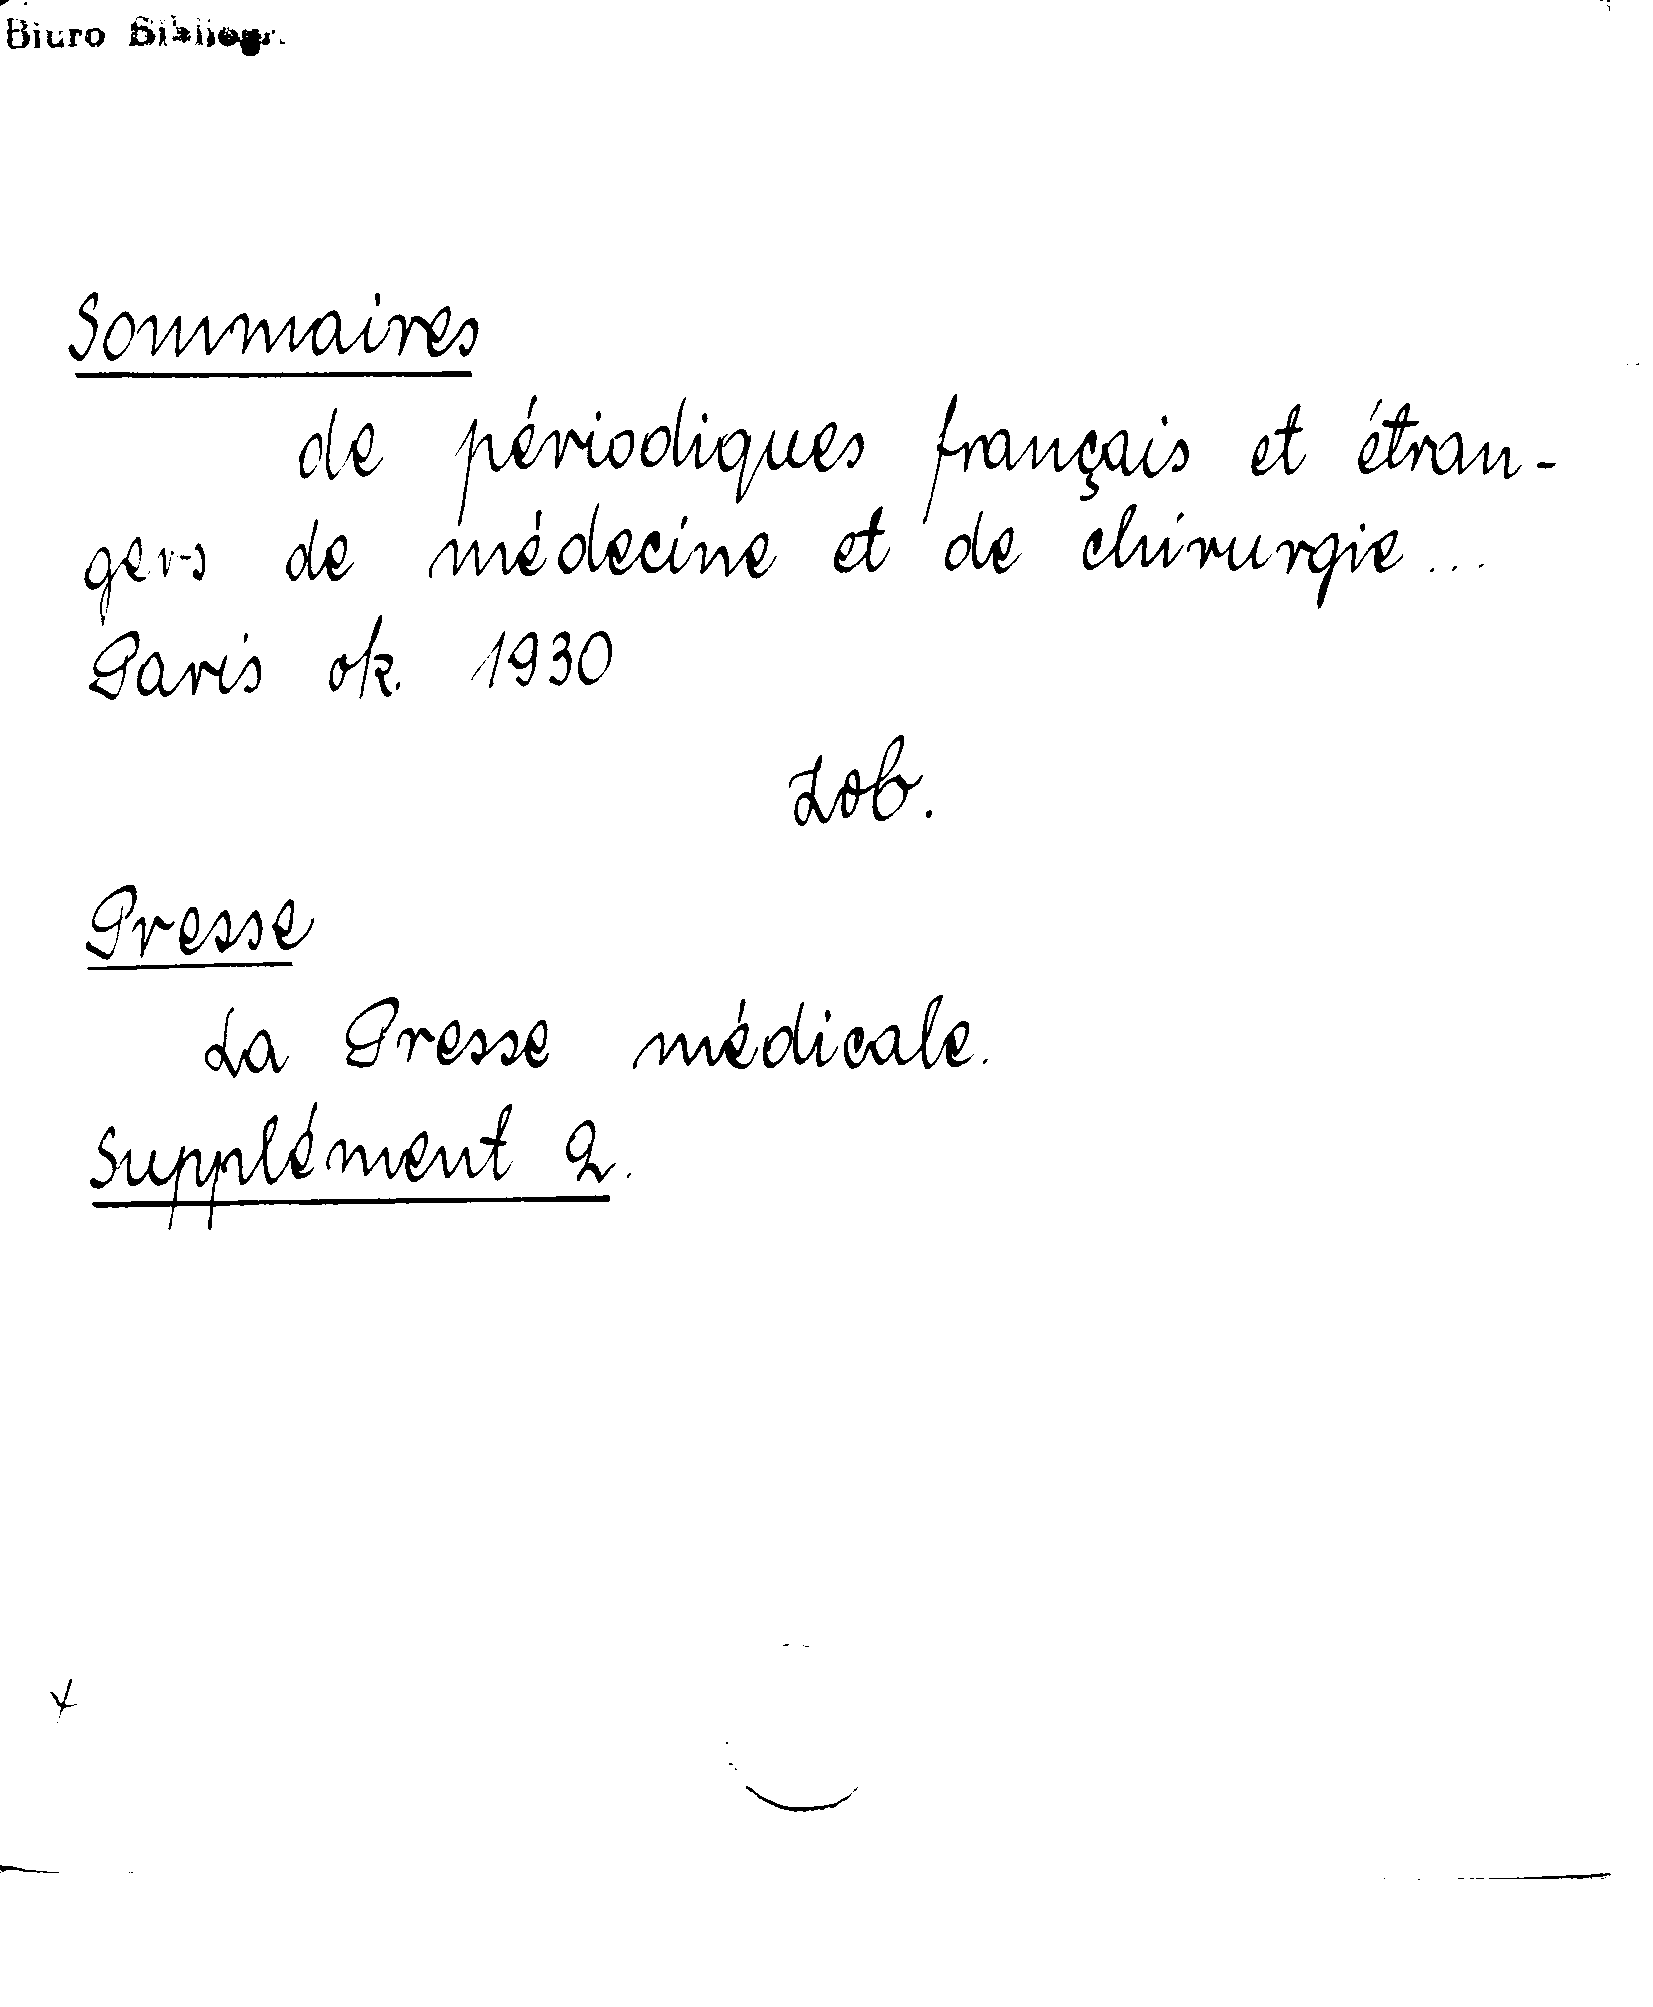 Biuro Bibliogr.
Sommaires
de périodiques français et étran-
gers de médecine et de chirurgie...
Paris ok. 1930
Zob.
Presse
La Presse médicale.
Supplément 2.